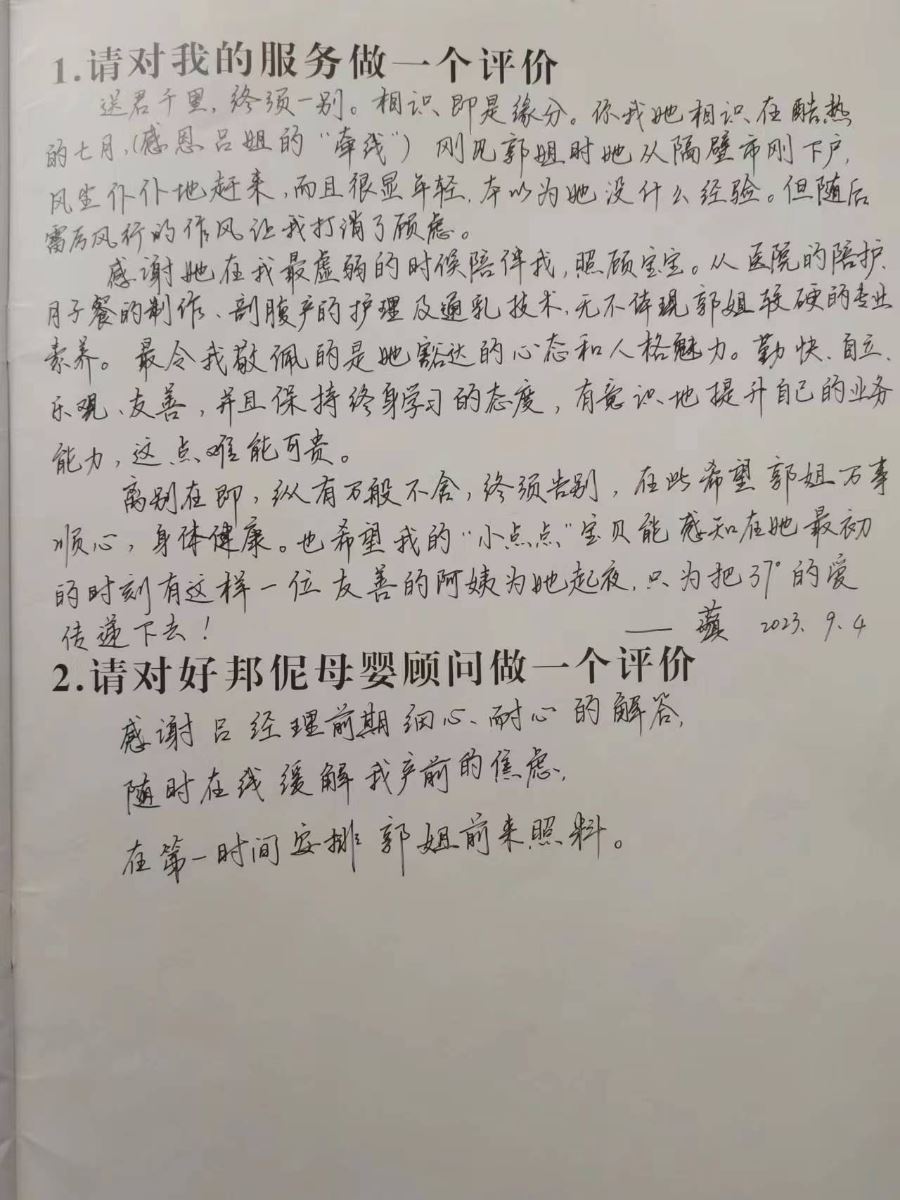 1.请对我的服务做一个评价
送君千里,终须一别。相识即是缘分。你我她相识在酷热
的七月,(感恩吕姐的“牵线”)刚见郭姐时她从隔壁市刚下户,
风尘仆仆地赶来,而且很显年轻,本以为她没什么经验。但随后
雷厉风行的作风让我打消了顾虑。
感谢她在我最虚弱的时候陪伴我,照顾宝宝。从医院的陪护、
月子餐的制作、剖腹产的护理及通乳技术,无不体现郭姐较硬的专业
素养。最令我敬佩的是她豁达的心态和人格魅力。勤快、自立、
乐观、友善,并且保持终身学习的态度,有意识地提升自己的业务
能力,这点难能可贵。
离别在即,纵有万般不舍,终须告别,在此希望郭姐万事
顺心,身体健康。也希望我的“小点点”宝贝能感知在她最初
的时刻有这样一位友善的阿姨为她起夜,只为把37°的爱
传递下去!
—— 2023.9.4
2.请对好邦伲母婴顾问做一个评价
感谢吕经理前期细心、耐心的解答,
随时在线缓解我产前的焦虑,
在第一时间安排郭姐前来照料。